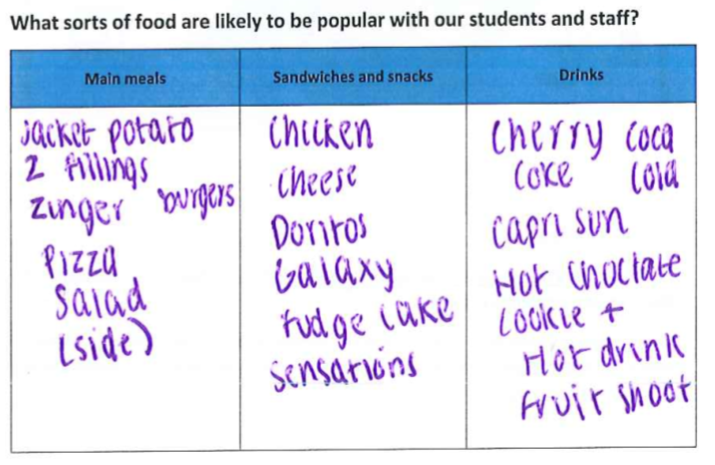 What sorts of food are likely to be popular with our students and staff?
Main meals
Jacket potato
2 fillings
Zinger burgers
Pizza
Salad
(side)
Sandwiches and snacks
Chicken
Cheese
Doritos
Galaxy
fudge cake
Sensations
Drinks
Cherry Coca
Coke Cola
Capri sun
Hot Choclate
Cookie +
Hot drink
fruit shoot